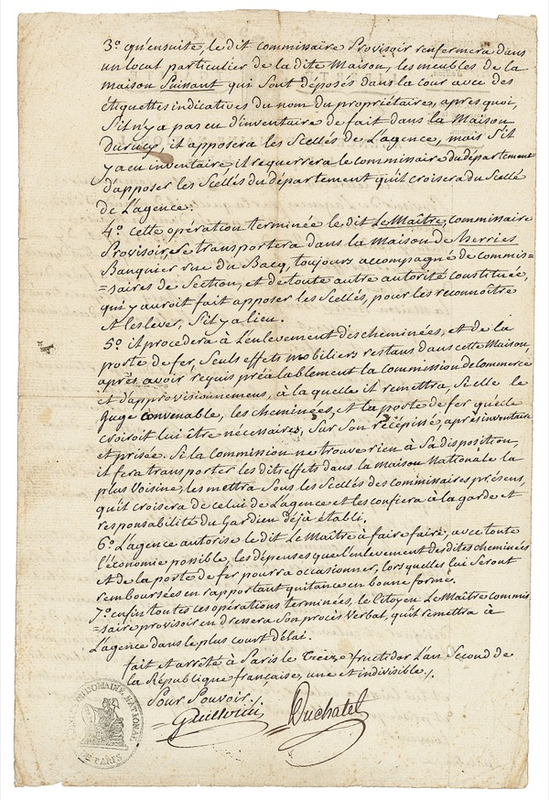 3.º qu'ensuite, le dit commissaire Provisoir renfermera dans
un local particulier de la dite Maison, les meubles de la
maison Suinant qui sont déposés dans la cour avec des
étiquettes indicatives du nom du propriétaires, après quoi,
S'il n'y a pas eu d'inventaire de fait dans la Maison
il apposera les Scellés de L'agence, mais S'il
y a eu inventaire il requerrera le commissaire du département
d'apposer les Scellés du département qu'il croisera du Scellé
de L'agence.
4.º cette opération terminée le dit Le Maître, commissaire
Provisoir, Se transportera dans la Maison de herries
Banquier rue du Bacq, toujours accompagné de commis=
=saires de Section, et de toute autre autorité constituée,
qui y auroit fait apposer les Scellés, pour les reconnoître
et les lever, S'il y a lieu.
5.º il procedera à L'enlevement des cheminées, et de la
porte de fer, Seuls effets mobiliers restans dans cette Maison,
après avoir requis préalablement la Commission de commerce
et d'approvisionnemens, à la quelle il remettra, Si elle le
Juge convenable, les cheminées, et la porte de fer qu'elle
croiroit lui être nécessaires, Sur Son récépissé, après inventaire
et prisée. Si la Commission ne trouve rien à Sa disposition,
il fera transporter les dits effets dans la Maison Nationale la
plus Voisine, les mettra Sous les Scellés des commissaires présens,
qu'il croisera de celui de L'agence et les confiera à la garde et
responsabilité du Gardien déjà établi.
6.º L'agence autorise le dit Le Maître à faire faire, avec toute
l'économie possible, les dépenses que l'enlevement des dites cheminées
et de la porte de fer pourra occasionner, lorsquelles lui Seront
remboursées en rapportant quitance en bonne forme.
7.º enfin toutes ces opérations terminées, le Citoyen Le Maître commis
=saire provisoir en dressera Son procès Verbal, qu'il remettra à
L'agence dans le plus court délai.
fait et arrêté à Paris le Treize fructidor L'an Second de
la République française, une et indivisible ./.
Pour Pouvoir ./.
Duchatel
NATIONAL
PARIS